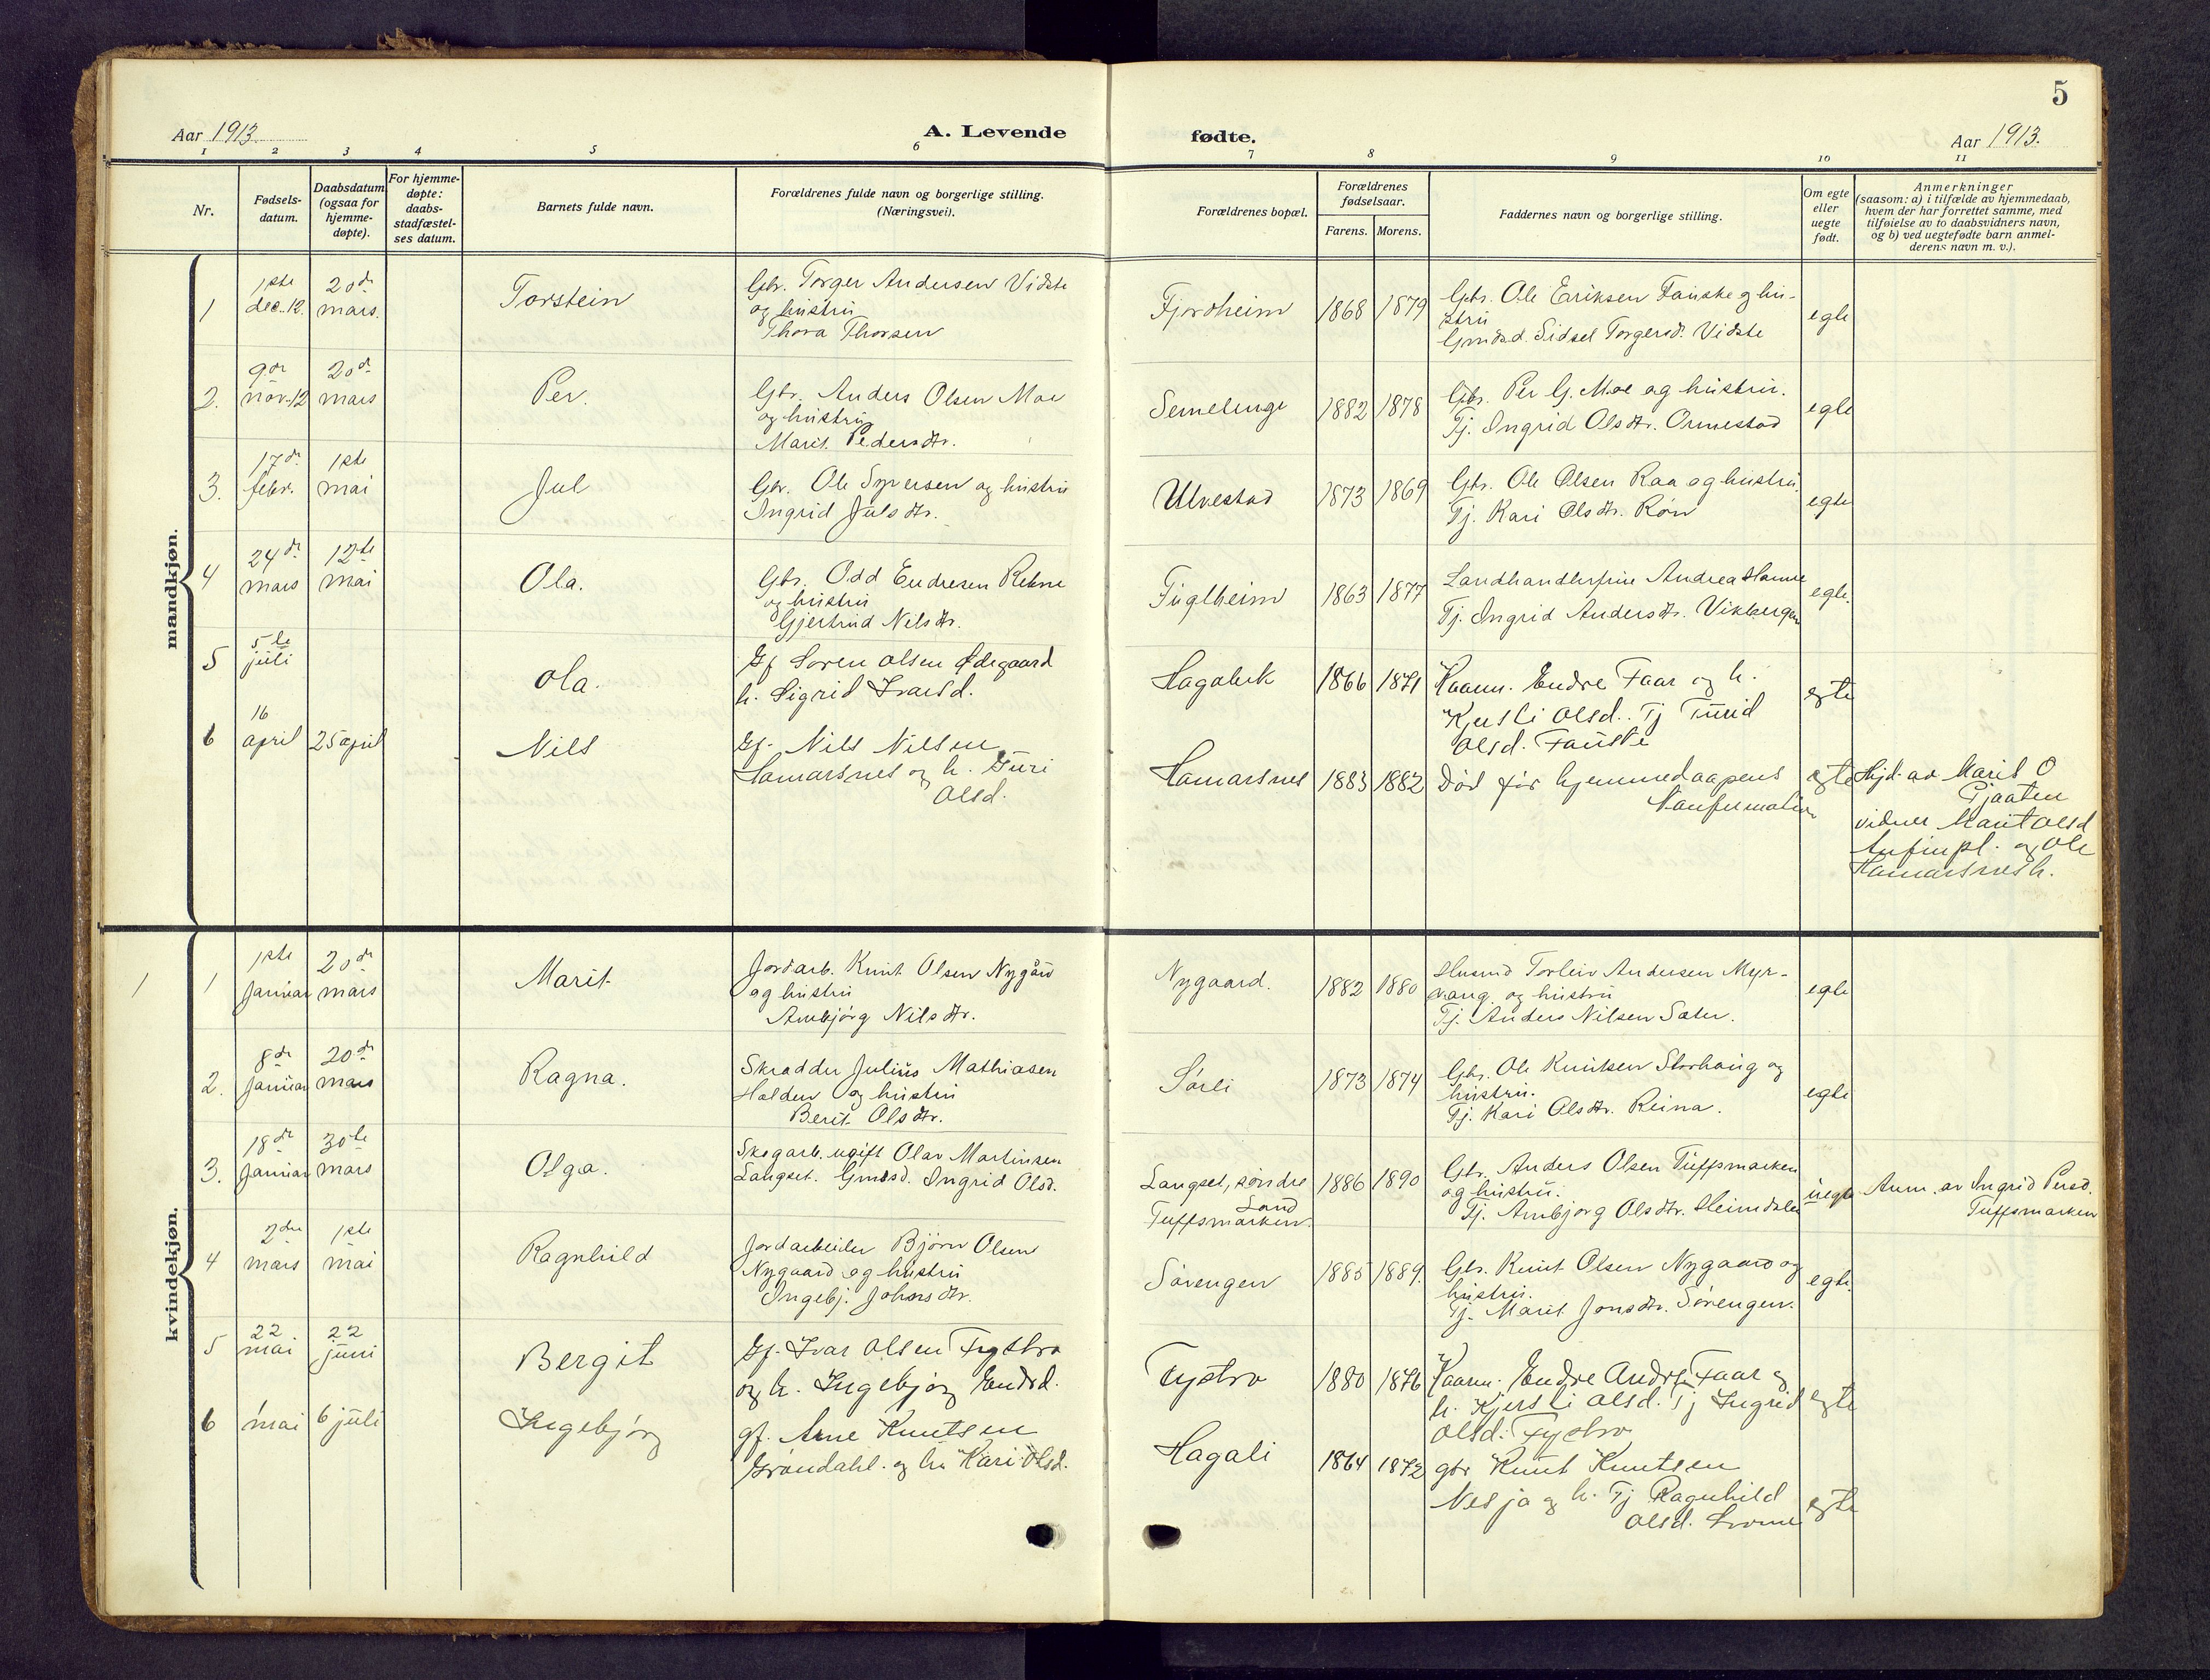 5
Aar 1913.
A. Levende
fødte.
Aar 1913.
1 2 3 4 5 6 7 8 9 10 11
Nr.
Fødsels-
datum.
Daabsdatum
(ogsaa for
hjemme-
døpte).
For hjemme-
døpte:
daabs-
stadfæstel-
ses datum.
Barnets fulde navn.
Forældrenes fulde navn og borgerlige stilling.
(Næringsvei).
Forældrenes bopæl.
Forældrenes
fødselsaar.
Farens. Morens.
Faddernes navn og borgerlige stilling.
Om egte
eller
uegte
født.
Anmerkninger
(saasom: a) i tilfælde av hjemmedaab,
hvem der har forrettet samme, med
tilføielse av to daabsvidners navn,
og b) ved uegtefødte barn anmel-
derens navn m. v.).
mandkjøn.
1
1ste
dec. 12.
20de
mars.
Torstein
Gbr. Torger Andersen Vidste
og hustru
Thora Thorsen
Fjordheim
1868 1879
Gbr. Ole Eriksen Fauske og hu-
stru
Gmdsd. Sidsel Torgersd. Vidste
egte
2.
9de
nov. 12
20de
mars
Per.
Gbr. Anders Olsen Moe
og hustru
Marit Pedersdtr.
Semelenge
1882 1878
Gbr. Per G. Moe og hustru.
Tj. Ingrid Olsdtr. Ormestad
egte
3.
17de
febr.
1ste
mai
Jul
Gbr. Ole Syversen og hustru
Ingrid Julsdtr.
Ulvestad
1873 1869
Gbr. Ole Olsen Raa og hustru.
Tj. Kari Olsdtr. Røn
egte
4
24de
mars
12te
mai
Ola.
Gbr. Odd Endresen Rebne
og hustru
Gjertrud Nilsdtr.
Fuglheim
1863 1877
Landhandlerfrue Andrea Hamre
Tj. Ingrid Andersdtr. Vikbergen
egte.
5
5te
juli
Ola.
Gf Søren Olsen Ødegaard
h. Sigrid Ivarsd.
Hagabek
1866 1871
Kaarm. Endre Faar og h.
Kjersti Olsd.. Tj Turid
Olsd. Fauske
egte
6
16
april
25 april
Nils
Gf. Nils Nilsen
Hamarsnes og h. Guri
Olsd.
Hamarsnes
1883 1882
Død før hjemmedaapens
egte
Hjd. av Marit O
vidner Marit Olsd
og Ole
Hamarsnes h.
kvindekjøn.
1
1
1ste
januar
20de
mars
Marit
Jordarb. Knut Olsen Nygård
og hustru
Ambjørg Nilsdtr.
Nygaard.
1882 1880
Husmd Torleiv Andersen Myr-
vang og hustru
Tj. Anders Nilsen Sæter.
egte
2.
8de
januar
20de
mars
Ragna.
Skrædder Julius Mathiasen
Halden og hustru
Berit Olsdtr.
Sørli
1873 1874
Gbr. Ole Knutsen Storhaug og
hustru.
Tj. Kari Olsdtr. Reina.
egte
3.
18de
januar
30te
mars
Olga.
Skogarb. ugift Olav Martinsen
Langset. Gmdsd. Ingrid Olsd.
Langset, søndre
Land
Tuffsmarken.
1886 1890
Gbr. Anders Olsen Tuffsmarken
og hustru.
Tj. Ambjørg Olsdtr. Heimdalen
uegte
Anm. av Ingrid Persd.
Tuffsmarken
4
2den
mars
1ste
mai
Ragnhild
Jordarbeider Bjørn Olsen
Nygaard og hustru
Ingebj. Johnsdtr.
Sørengen
1885 1889.
Gbr. Knut Olsen Nygaard og
hustru.
Tj. Marit Jonsdtr. Sørengen.
egte.
5
22
mai
22
juni
Bergit
Gf. Ivar Olsen Fystro
og h. Ingebjørg Endrd.
Fystro
1880 1876
Kaarm. Endre Andr. Faar og
h. Kjersti Olsd. Tj Ingrid
Olsd. Fystro
egte
6
mai
6 juli
Ingebjørg
gf. Arne Knutsen
Grøndahl. og hu Kari Olsd.
Hagali
1864 1872
gbr Knut Knutsen
Nesja og h. Tj Ragnhild
Olsd.
egte